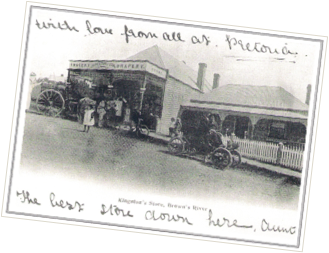 With love from all at. Pretoria.
Kingston's Store, Brown's River
The best store down here,